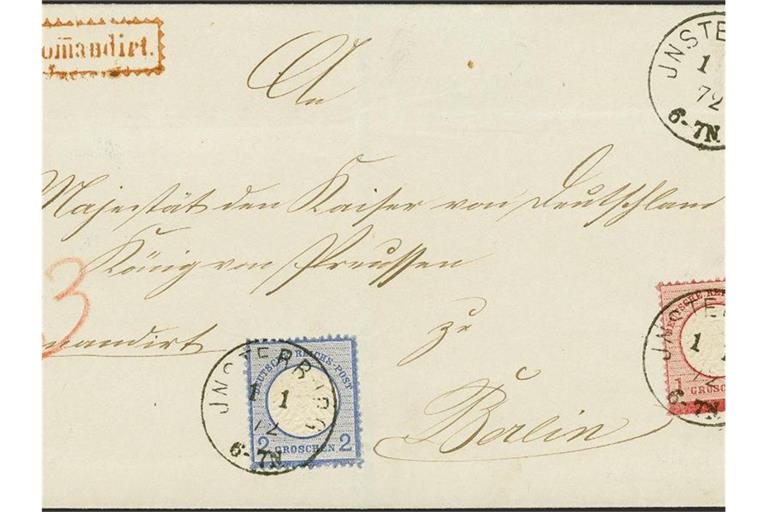 omandirt.
An
Majestät den Kaiser von Deutschlan
König von Preussen
mandirt
zu
Berlin
3
JNSTE
1
72
6-7N.
JNSTERBURG
1 1
72
6-7N
DEUTSCHE REICHS-POST
2 GROSCHEN 2
JNSTER
1
72
6-7N
DEUTSCHE REI
1 GROSCH